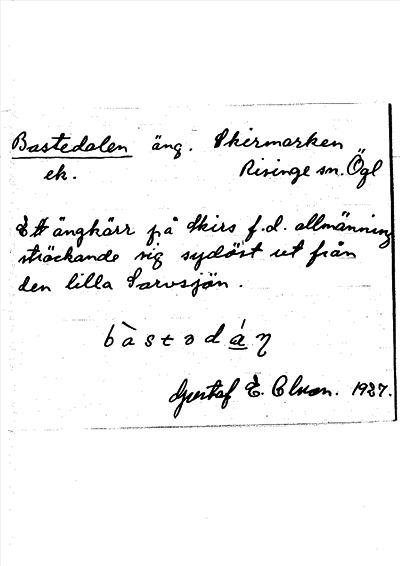 Bastedalen äng. Skirmarken
ek. Risinge sn. Ögl
Ett ängkärr på Skirs f.d. allmänning
sträckande sig sydöst ut från
den lilla Sarvsjön.
bàstədáŋ
Gustaf E. Clason. 1927.